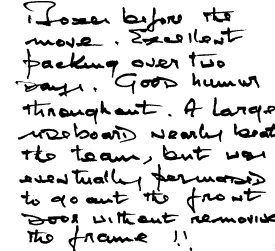 Boxes before the
move. Excellent
packing over two
days. Good humour
throughout. A large
sideboard nearly beat
the team, but was
eventually persuaded
to go out the front
door without removing
the frame !!